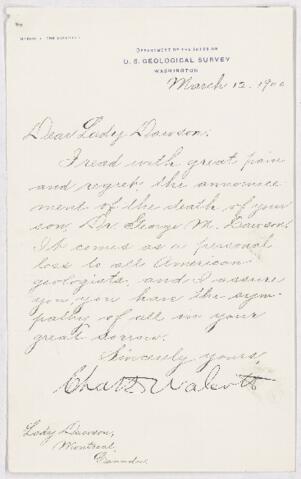 DEPARTMENT OF THE INTERIOR
U. S. GEOLOGICAL SURVEY
WASHINGTON
March 12, 1900
Dear Lady Dawson:
I read with great pain
and regret the announce
ment of the death of your
son, Dr. George M. Dawson.
It comes as a personal
loss to all American
geologists, and I assure
you, you have the sym-
pathy of all in your
great sorrow.
Sincerely yours,
Chas D Walcott
Lady Dawson,
Montreal,
Canada.